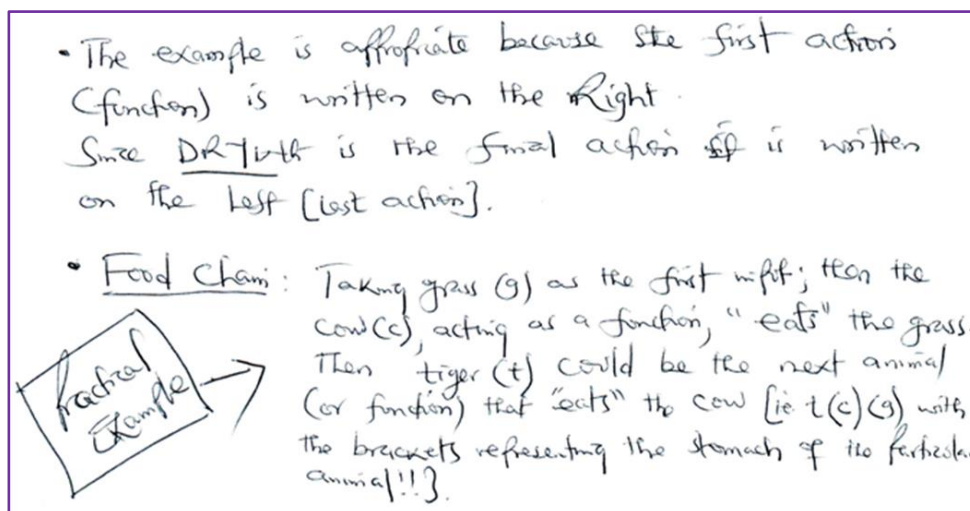 • The example is appropriate because the first action
(function) is written on the Right.
Since is the final action it is written
on the Left [last action].
• Food Chain: Taking grass (g) as the first input; then the
cow (c), acting as a function, "eats" the grass.
Then tiger (t) could be the next animal
(or function) that "eats" the cow [ie. t(c)(g) with
the brackets representing the stomach of the particular
animal!!].
Practical
Example